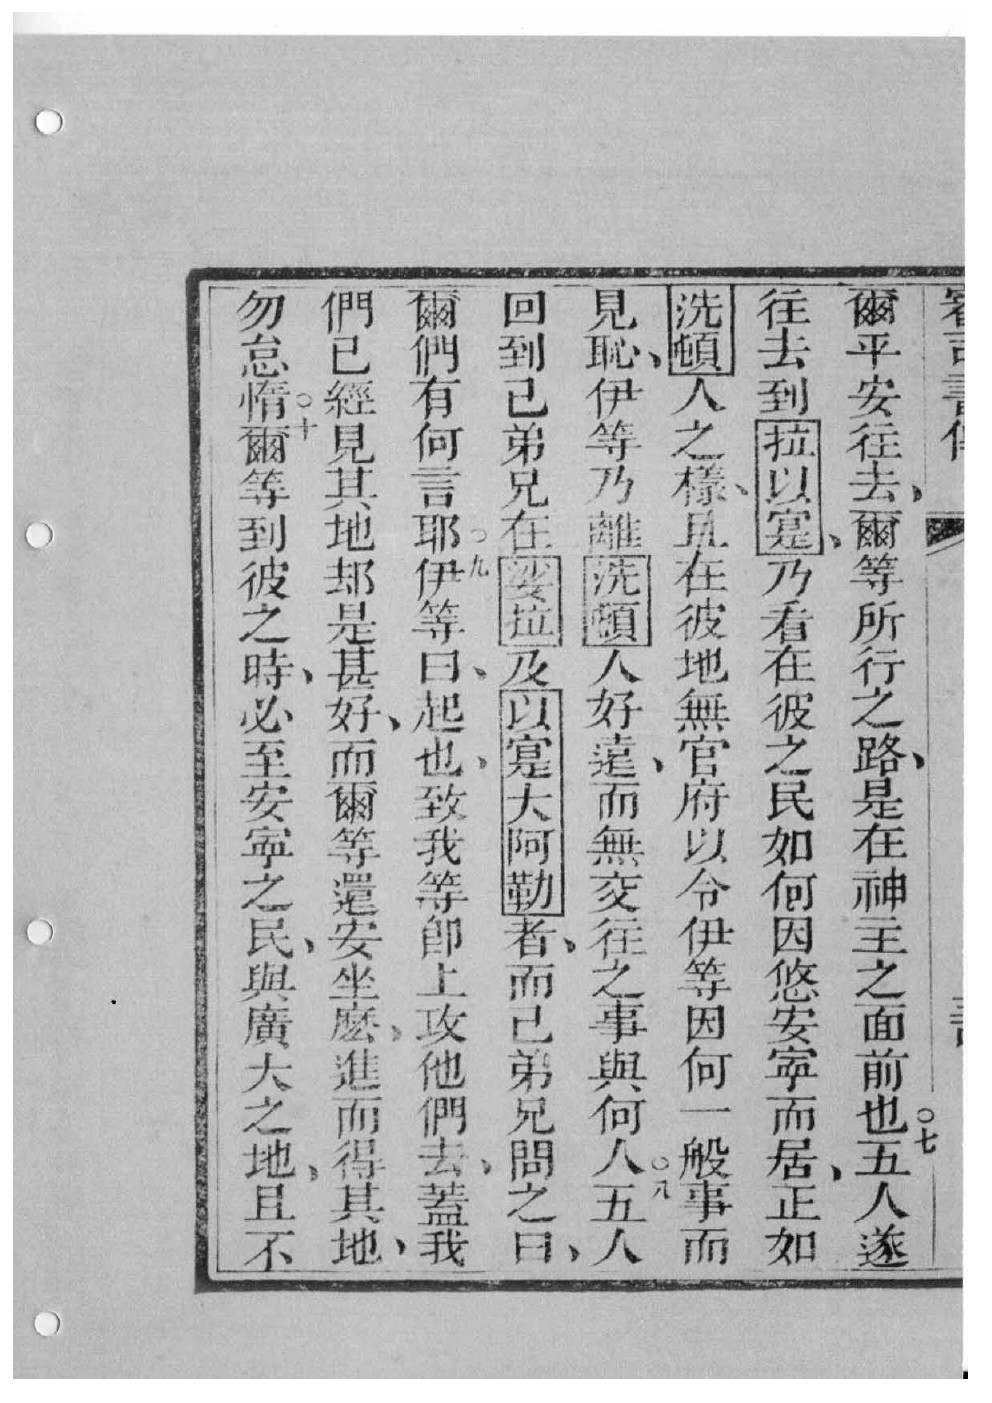 審司書傳
爾平安往去、爾等所行之路、是在神主之面前也○七五人遂
往去到拉以寔、乃看在彼之民如何因悠安寧而居、正如
洗頓人之樣、且在彼地無官府以令伊等因何一般事而
見恥、伊等乃離洗頓人好遠、而無交往之事與何人○八五人
回到己弟兄在娑拉及以寔大阿勒者、而己弟兄問之曰、
爾們有何言耶○九伊等曰、起也、致我等卽上攻他們去、蓋我
們已經見其地却是甚好、而爾等還安坐麽、進而得其地、
勿怠惰○十爾等到彼之時、必至安寧之民、與廣大之地、且不